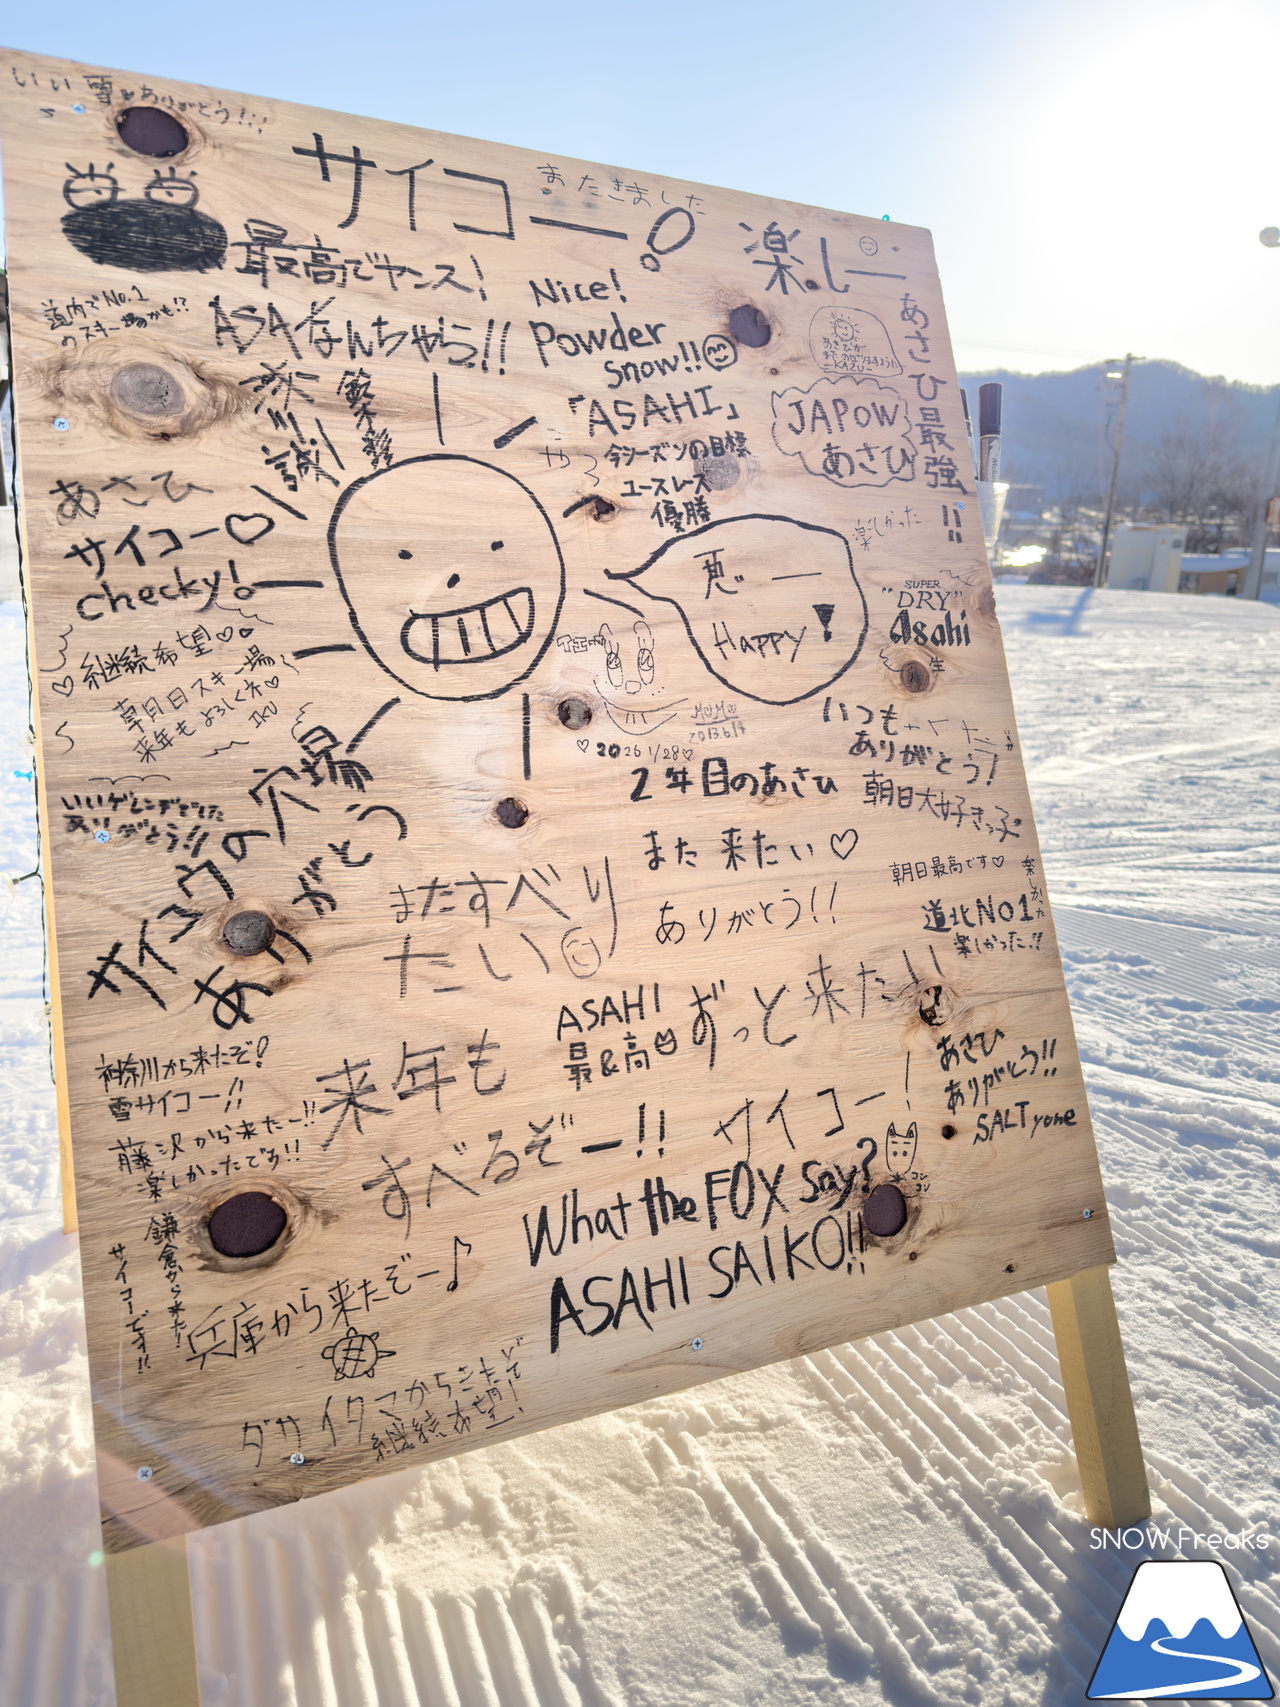 いい雪♡ありがとう!!!
サイコー!
またきました
楽しー
最高でヤンス!
道内でNo.1
のスキー場かも!?
ASAなんちゃら!!
Nice!
Powder
Snow!!
「ASAHI」
今シーズンの目標
ユースレース
優勝
JAPOW
あさひ
あさひ最強!!
KAZU
楽しかった
あさひ
サイコー♡
checky!
継続希望♡
朝日スキー場
来年もよろしくネ♡
IKU
Happy!
イエーイ
SUPER
"DRY"
Asahi
生
MOMO
2013.6.14
♡2026 1/28♡
2年目のあさひ
いつも
ありがとう!
朝日大好きっ子
いいゲレンデでした
ありがとう!!
サイコウの穴場
ありがとう
また来たい♡
ありがとう!!
またすべり
たい
朝日最高です♡
道北No1
楽しかった!!
楽しかった!!
ASAHI
最&高
ずっと来たい
神奈川から来たぞ!
雪サイコー!!
来年も
すべるぞー!!
サイコー!
あさひ
ありがとう!!
SALTyone
藤沢から来たー!!
楽しかったです!!
鎌倉から来た!
サイコーです!!
What the FOX say?
コン
コン
ASAHI SAIKO!!
兵庫から来たぞー♪
ダサイタマからきたぜ!
継続希望!
SNOW Freaks